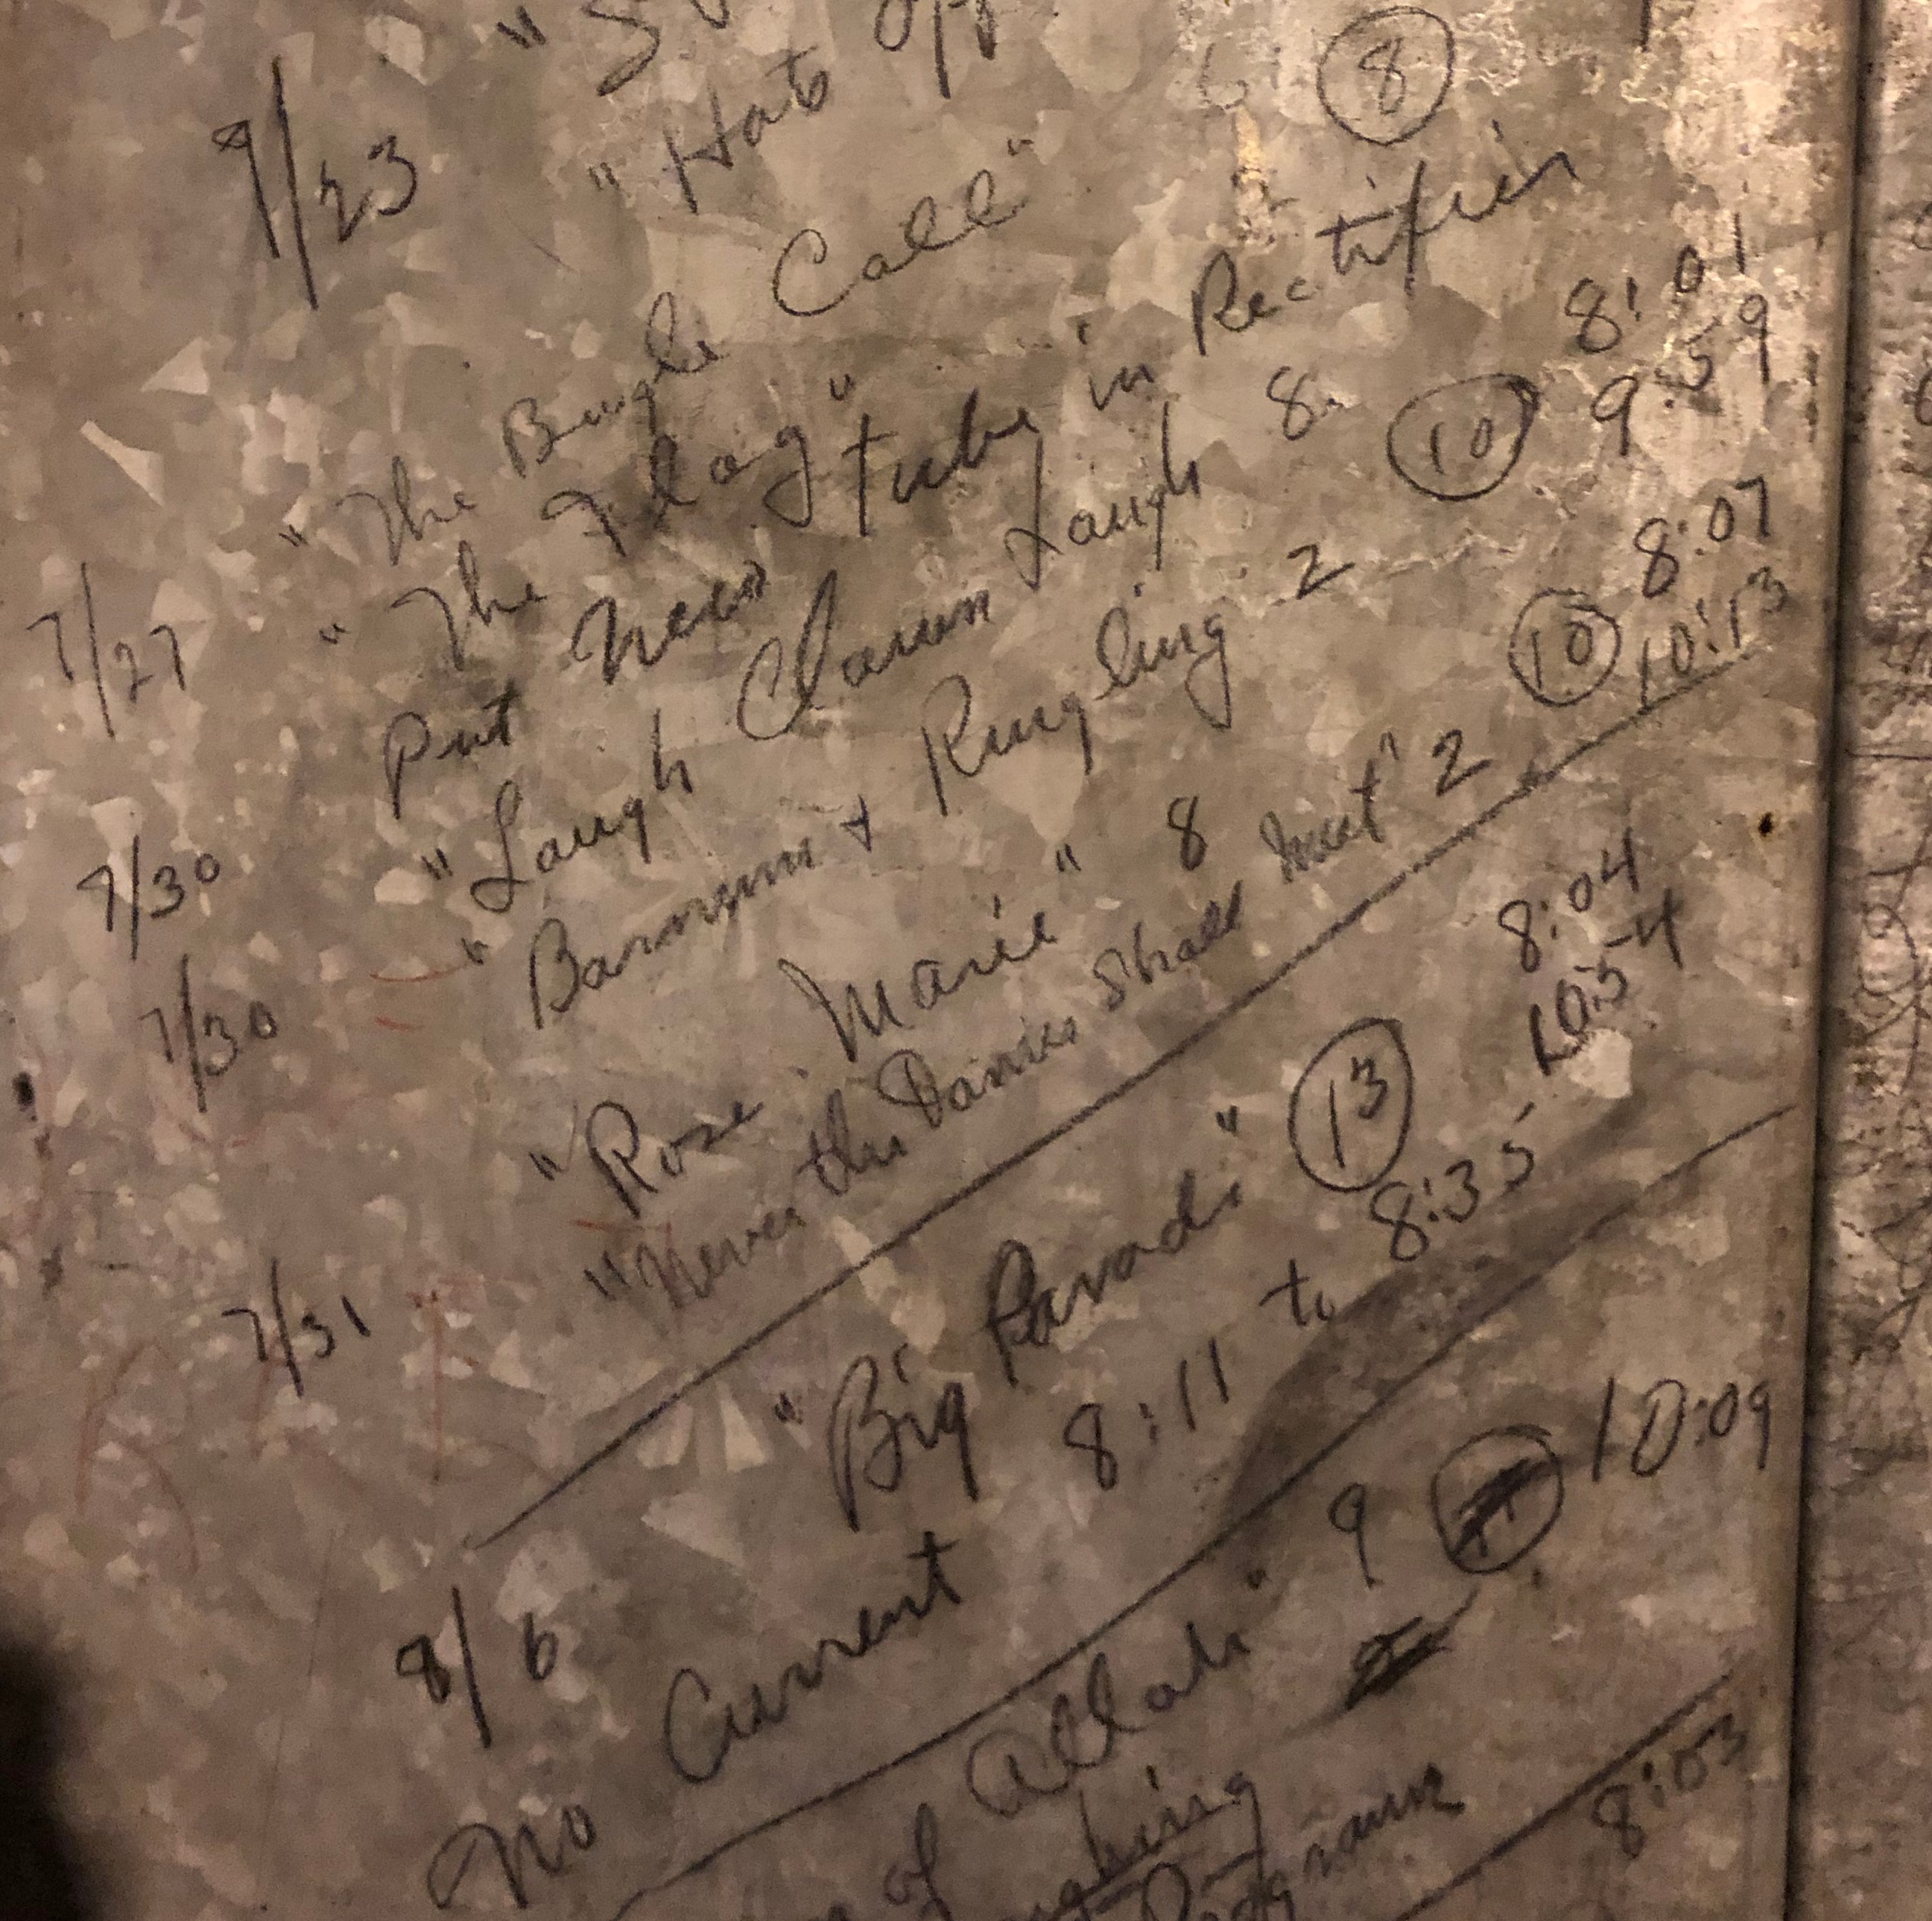 "Hats Off
7/23 "The Bugle Call" 8
"The Flag"
7/27 Put New tube in Rectifier
7/30 "Laugh Clown Laugh 8 8:01
7/30 "Barnum + Ringling 2 10 9:59
"Rose Marie" 8 8:07
7/31 "Never the Dames Shall Meet" 2 10 10:13
8/6 "Big Parade" 13 8:04
10:54
No Current 8:11 to 8:35
of Allah" 9 10:09
Program 8:03